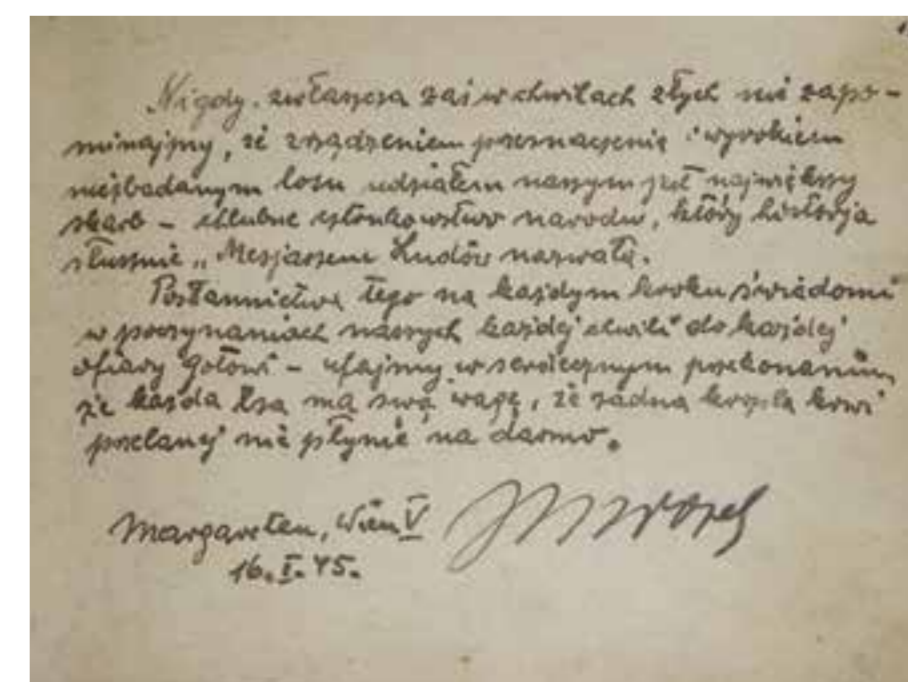 Nigdy, zwłaszcza zaś w chwilach złych nie zapo-
minajmy, że zrządzeniem przeznaczenia i wyrokiem
niezbadanym losu udziałem naszym jest największy
skarb – chlubne członkowstwo narodu, który historja
słusznie „Mesjaszem Ludów nazwała.
Posłannictwa tego na każdym kroku świadomi
w poczynaniach naszych każdej chwili do każdej
ofiary gotowi – ufajmy w serdecznym przekonaniu,
że każda łza ma swą wagę, że żadna kropla krwi
przelanej nie płynie na darmo.
Margareten, Wien V
16. I. 45.